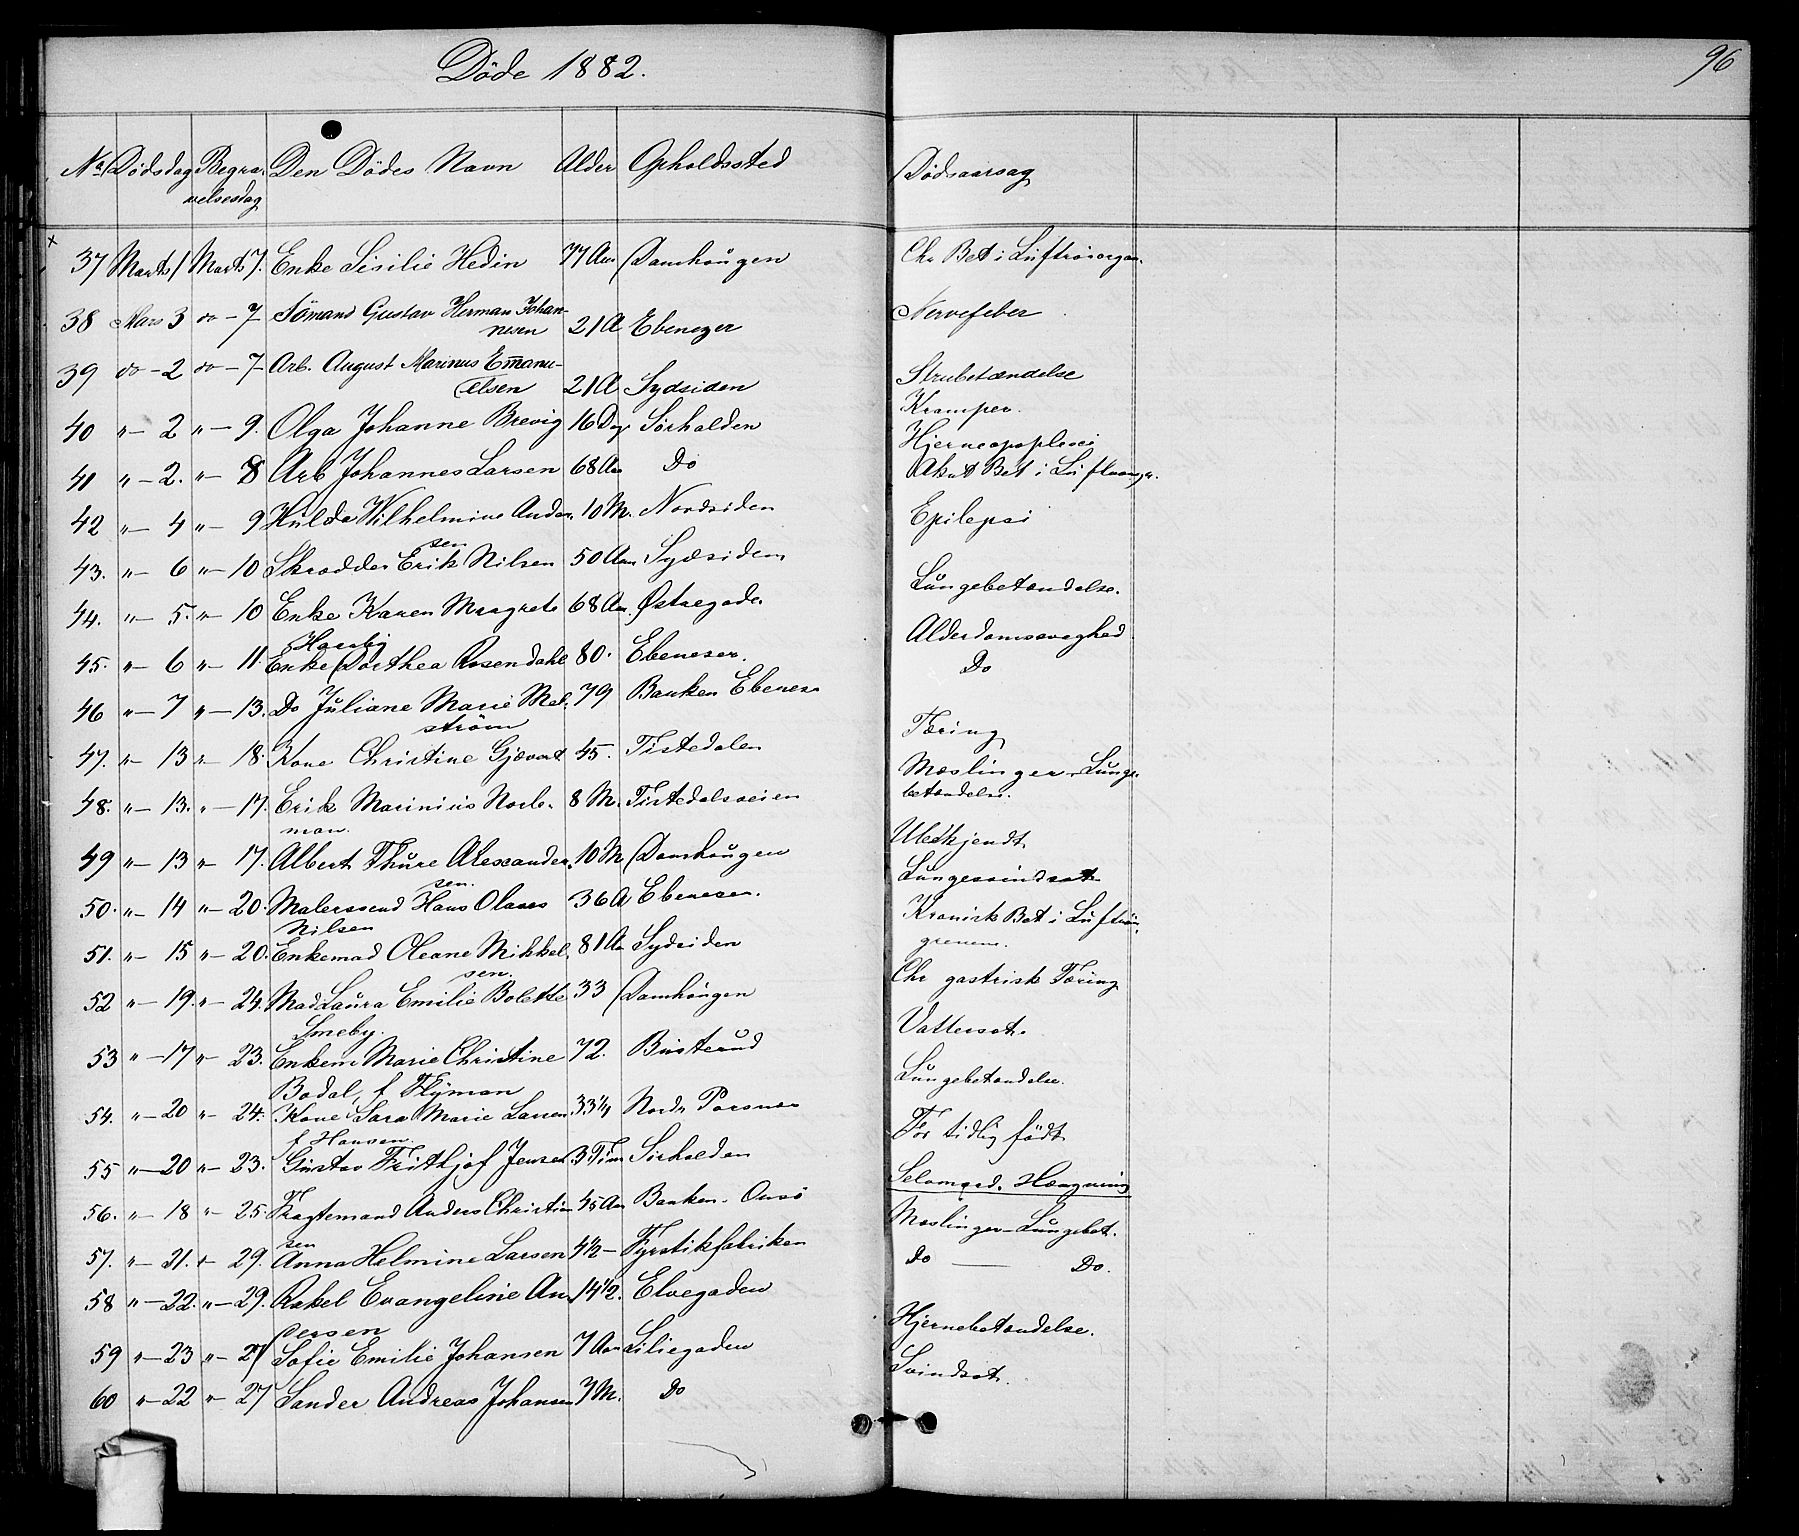 Döde 1882.
96
No Dödsdag Begravelsesdag Den Dödes Navn Alder Opholdssted Dödsaarsag
37 Marts 1 Marts 7. Enke Sisilie Hedin 77 Aar Damhaugen Chr Bet i Luftrörorgan.
38 Mars 3 do - 7 Sömand Gustav Herman Johan-
nesen 21 A Ebenezer Nervefeber
39 do - 2 do - 7 Arb. August Marinus Emanu-
elsen 21 A Sydsiden Strubetændelse
40 " - 2 " - 9. Olga Johanne Brevig 16 Dag Sörhalden Kramper.
41 " - 2. " - 8 Arb Johannes Larsen 68 Aar Do Hjerneapoplexi
42 " - 4 " - 9 Hulda Wilhelmine Ander-
sen 10 M. Nordsiden Akut Bet i Luftvange.
43. " - 6 " - 10 Skrædder Erik Nilsen 50 Aar Sydsiden Epilepsi
44. " - 5. " - 10 Enke Karen Margrete
Houby 68 Aar. Østregade. Lungebetændelse.
45. " - 6 " - 11. Enke Dorthea Rosendahl 80. Ebeneser. Alderdomssvaghed
46 " - 7 " - 13. Do Juliane Marie Mel-
ström 79 Banken Ebeneser Do
47. " - 13 " - 18. Kone Christine Gjævert 45. Tistedalen Tæring
48. " - 13. " - 17. Erik Marinius Norle-
man. 8 M. Tistedalsveien Mæslinger. Lunge-
betændelse.
49 " - 13 " - 17. Albert Thure Alexander-
sen. 10 M Damhaugen Ubekjendt
50. " - 14 " - 20. Malersvend Hans Olaves
Nilsen 36 A Ebeneser. Lungesvindsot
51. " - 15 " - 20. Enkemad Oleane Mikkel-
sen. 81 Aar Sydsiden Kronisk Bet i Luftrör-
grenene.
52 " - 19. " - 24. Mad Laura Emilie Bolette
Smeby. 33 Damhaugen Chr gastrisk Tæring
53 " - 17 " - 23. Enkem Marie Christine
Bodal, f Flyman 72. Busterud Vattersot.
54. " - 20 " - 24. Kone Sara Marie Larsen
f Hansen. 33 1/4 Nordr Lungebetændelse.
55 " - 20 " - 23. Gustav Frithjof Jensen 3 Tim Sörhalden For tidlig födt
56. " - 18 " - 25. Fragtemand Anders Christian-
sen 45 Aar Banken. Onsö Selvmord. Hængning
57. " - 21. " - 29. Anna Helmine Larsen 4 1/2 - Fyrstikfabriken Mæslinger - Lungebet.
58 " - 22. " - 29. Rakel Evangeline An-
dersen 14 1/2. Elvegaden Do — Do.
59 " - 23 " - 27 Sofie Emilie Johansen 7 Aar Liliegaden Hjernebetændelse.
60 " - 22 " - 27 Sander Andreas Johansen 3 M. Do Svindsot.